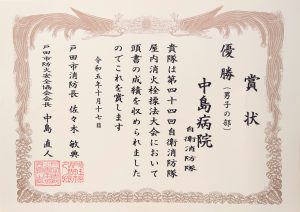 賞状
優勝（男子の部）
中島病院
自衛消防隊
貴隊は第四十四回自衛消防隊
屋内消火栓操法大会において
頭書の成績を収められました
のでこれを賞します
令和五年十月十七日
戸田市消防長 佐々木 敏典
戸田市防火安全協会会長 中島 直人